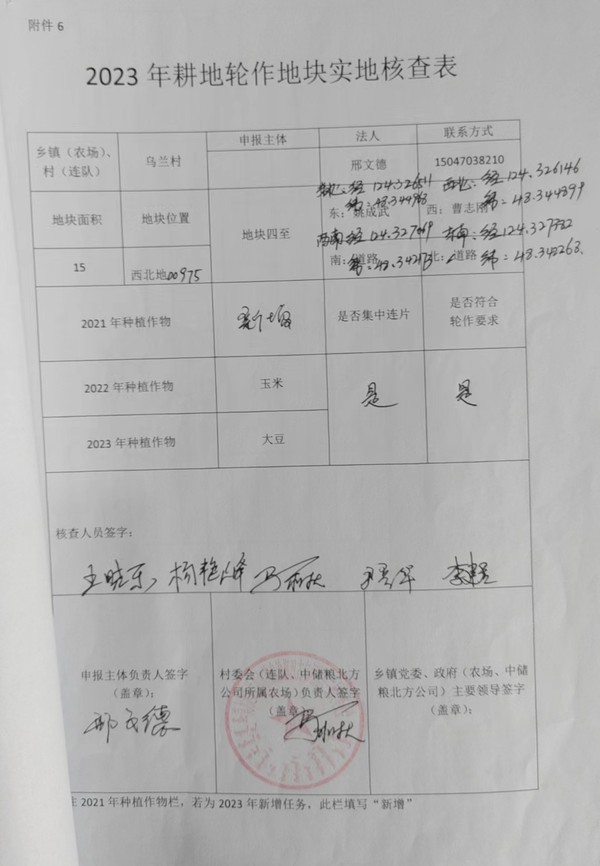 附件 6
2023 年耕地轮作地块实地核查表
乡镇（农场）、村（连队）
乌兰村
申报主体
法人
联系方式
邢文德
15047038210
地块面积
地块位置
地块四至
东北：经 124.326
西北：经 124.326146
东：姚成武
纬：48.344899
西：曹志刚
西南：经 124.327
东南：经 124.327
南：道路
北：道路
纬：48.342263
15
西北地 00975
2021 年种植作物
新增
是否集中连片
是否符合
轮作要求
2022 年种植作物
玉米
是
是
2023 年种植作物
大豆
核查人员签字：
王晓东
杨艳峰
申报主体负责人签字
（盖章）：
邢文德
村委会（连队、中储粮北方
公司所属农场）负责人签字
（盖章）：
乡镇党委、政府（农场、中储
粮北方公司）主要领导签字
（盖章）：
注 2021 年种植作物栏，若为 2023 年新增任务，此栏填写“新增”